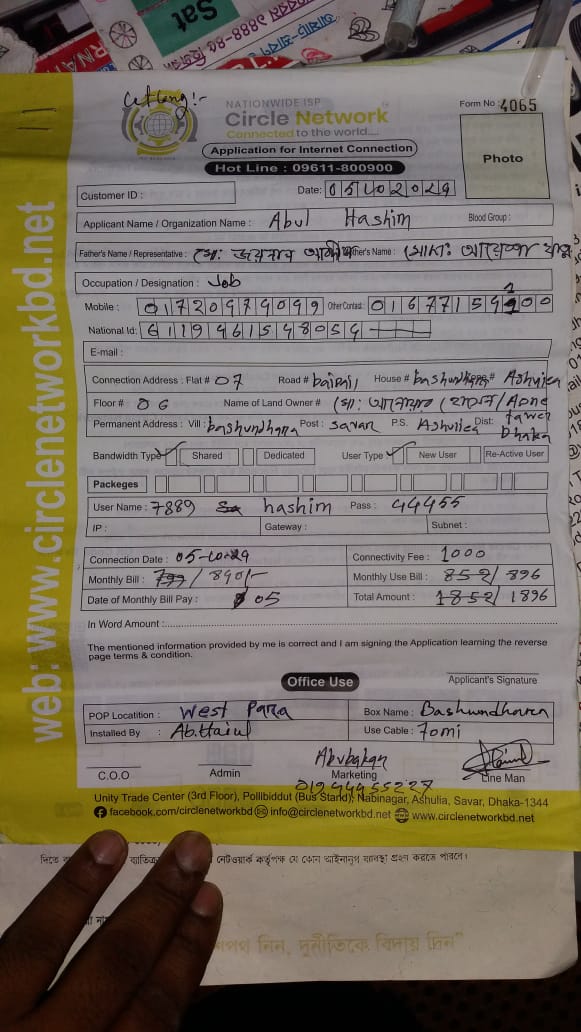 Sat
NATIONWIDE ISP
Circle Network
Connected to the world....
Form No : 4065
Application for Internet Connection
Hot Line : 09611-800900
Photo
Customer ID :
Date: 05102029
Applicant Name / Organization Name : Abul Hashim Blood Group :
Father's Name / Representative :
Occupation / Designation : Job
Mobile : 01720979099 Other Contact:
National Id:
E-mail :
Connection Address : Flat # 07 Road # House # bashundhara
Floor # 06 Name of Land Owner #
Permanent Address : Vill : bashundhara Post : savar P.S. Ashulia Dist: Dhaka
Bandwidth Type Shared Dedicated User Type New User Re-Active User
Packeges
User Name : 7889 hashim Pass : 44455
IP : Gateway : Subnet :
Connection Date : 05-10-29 Connectivity Fee : 1000
Monthly Bill : 799 / 840/- Monthly Use Bill : 852/ 896
Date of Monthly Bill Pay : 05 Total Amount : 1852/ 1896
In Word Amount :
The mentioned information provided by me is correct and I am signing the Application learning the reverse
page terms & condition.
Office Use
Applicant's Signature
POP Locatition : West Para Box Name : Bashundhara
Installed By : Use Cable : 70mi
C.O.O Admin Marketing Line Man
01944955227
Unity Trade Center (3rd Floor), Pollibiddut (Bus Stand), Nabinagar, Ashulia, Savar, Dhaka-1344
facebook.com/circlenetworkbd info@circlenetworkbd.net www.circlenetworkbd.net
web: www.circlenetworkbd.net
নেটওয়ার্ক কর্তৃপক্ষ যে কোন আইনানুগ ব্যাবস্থা গ্রহণ করতে পারবে।
শপথ নিন, দুর্নীতিকে বিদায় দিন"